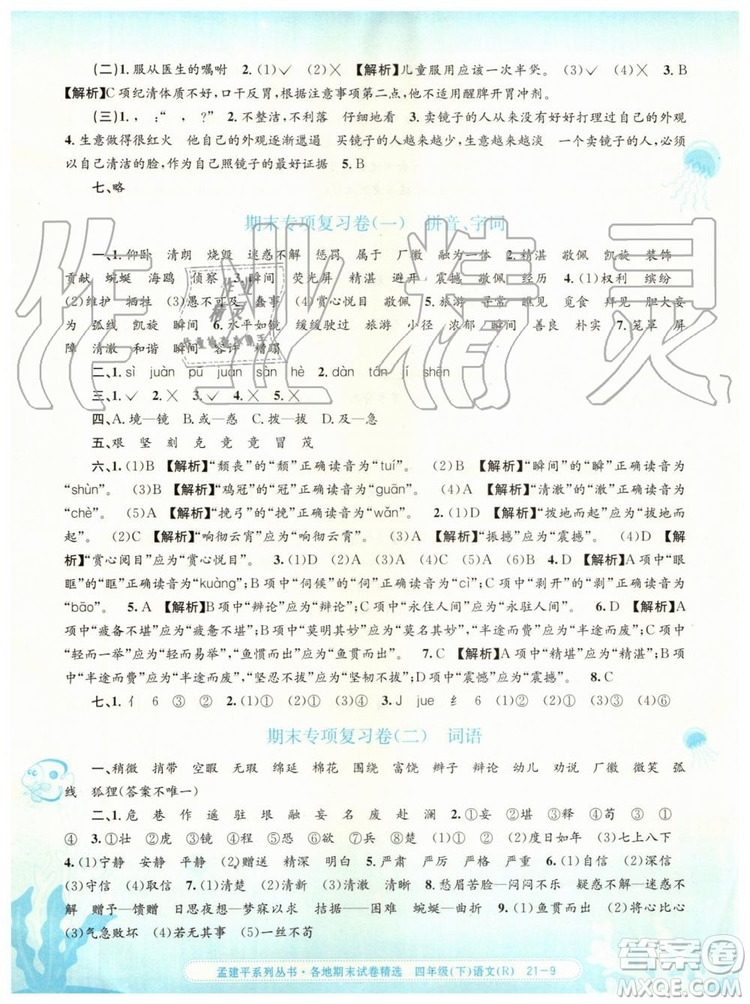 (二)1. 服从医生的嘱咐　2. (1)✓　(2)✕　【解析】儿童服用应该一次半袋。　3. B
【解析】C项纪清体质不好，口干反胃，根据注意事项第二点，不适用于醒脾养胃冲剂。
(三)1. ，　：“　，　？”　2. 不整洁，不利落　仔细地看　3. 卖镜子的人没有好好打理过自己的外观
4. 生意做得很红火　自己的外观逐渐邋遢　买镜子的人越来越少　生意越来越差　一个卖镜子的人，必须
以自己清洁的脸，作为自己照镜子的最好证据　5. B
七、略
期末专项复习卷(一)　拼音、字词
一、1. 仰卧　清朗　烧毁　迷惑不解　惩罚　属于　厂徽　敬佩　凯旋　装饰
贡献　蜿蜒　海鸥　侦察　3. 瞬间　荧光屏　精湛　避开　震撼　敬佩　经历　4. (1)权利　缤纷
(2)维护　牺牲　(3)不及　蠢事　(4)赏心悦目　敬佩　5. 旅游　寻常　觅食　胆大妄
为　弧线　凯旋　瞬间　6. 水平如镜　缓缓驶过　旅游　小径　浓郁　瞬间　善良　朴实　7. 笼罩　屏
障　清澈　和谐　瞬间　容许　糟蹋
二、1. sì　juàn　pū　juān　sàn　hè　2. dàn　shā　jì　shēn
三、1. ✓　2. ✕　3. ✕　4. ✕　5. ✕
四、A. 境—镜　B. 或—惑　C. 庄—装　D. 及—急
五、艰　坚　刻　克　竞　竟　冒　茂
六、1. (1)B　【解析】“颓丧”的“颓”正确读音为“tuí”。　(2)B　【解析】“瞬间”的“瞬”正确读音为
“shùn”。　(3)B　【解析】“鸡冠”的“冠”正确读音为“guān”。　(4)B　【解析】“清澈”的“澈”正确读音为
“chè”。　(5)A　【解析】“挽弓”的“挽”正确读音为“wǎn”。　2. (1)B　【解析】“拨地而起”应为“拔地而
起”。　(2)D　【解析】“响彻云宵”应为“响彻云霄”。　(3)A　【解析】“振撼”应为“震撼”。　(4)A　【解析】
“赏心阅目”应为“赏心悦目”。　3. (1)D　(2)A　(3)D　(4)C　4. (1)D　【解析】A项中“眼
眶”的“眶”正确读音为“kuàng”；B项中“伺候”的“伺”正确读音为“cì”；C项中“剥开”的“剥”正确读音为
“bāo”。　5. A　【解析】B项中“辩论”应为“辩论”；C项中“永住人间”应为“永驻人间”。　6. D　【解析】A
项中“疲备不堪”应为“疲惫不堪”；B项中“莫明其妙”应为“莫名其妙”，“半途而废”应为“半途而废”。　7. C
【解析】A项中“轻而一举”应为“轻而易举”，“鱼惯而出”应为“鱼贯而出”；B项中“精堪”应为“精湛”；D
项中“半涂而废”应为“半途而废”，“坚忍不拔”应为“坚忍不拔”，“震憾”应为“震撼”。　8. C
七、1. 亻　6　③　②　③　2. (1)①　(2)②　(3)④　3. J　jue　纟　6　①　④
期末专项复习卷(二)　词语
一、稍微　捎带　空暇　无瑕　绵延　棉花　围绕　富饶　辫子　辩论　幼儿　劝说　厂徽　微笑　弧
线　狐狸(答案不唯一)
二、1. 危　巷　作　遥　驻　垠　融　妄　名　废　赴　澜　2. (1)②　①　(2)③　①　②　(3)①
④　(4)①　③　②　3. (1)①壮　②虎　③镜　(2)①银　②笑　③诗　(3)①一干二净　②七上八下
4. (1)宁静　安静　平静　(2)赠送　捐赠　5. 严肃　严厉　严格　6. (1)自信　(2)深信
(3)守信　(4)诚信　7. (1)清澈　清晰　(2)渐渐　8. 愁眉苦脸——闷闷不乐　疑惑不解——迷惑不
解　赠予——馈赠　日思夜想——梦寐以求　拮据——困难　蜿蜒——曲折　9. (1)自言自语
(3)气急败坏　(2)若无其事　(4)不慌不忙
孟建平系列丛书·各地期末试卷精选　四年级(下)语文(R)　21－9
作业精灵
答案卷